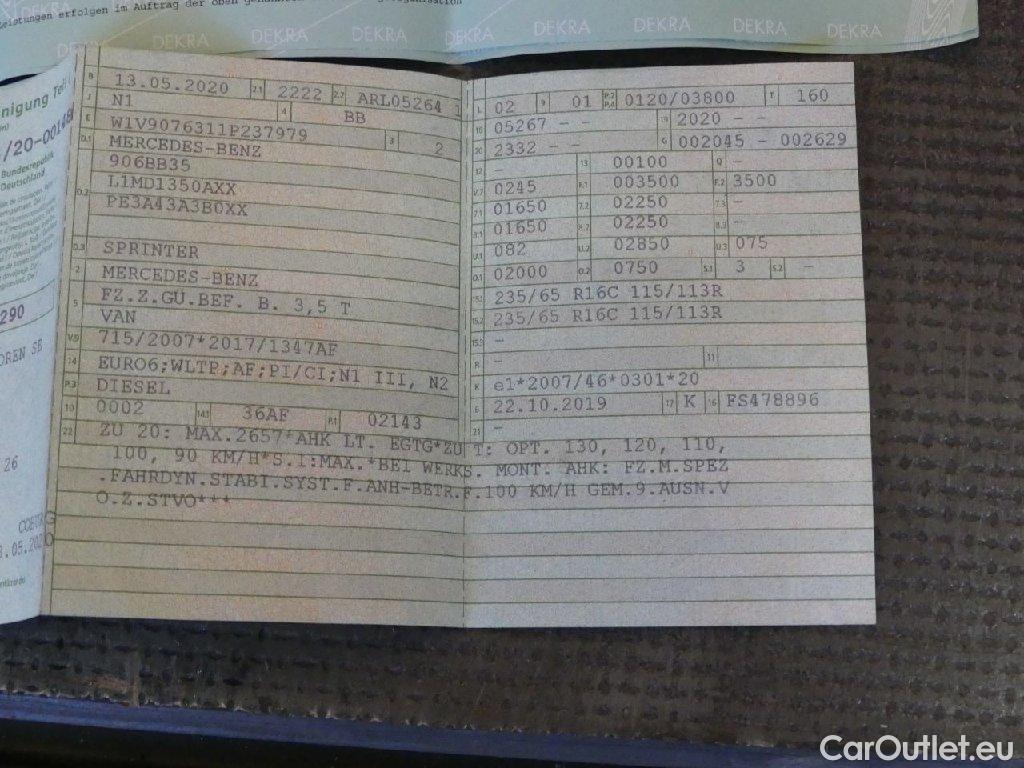 Leistungen erfolgen im Auftrag der oben
DEKRA DEKRA DEKRA DEKRA DEKRA DEKRA
nigung Teil
Bundesrepublik
Deutschland
290
OREN SE
26
B 13.05.2020 2.1 2222 2.2 ARL05264 1
J N1 4 BB
E W1V9076311P237979 3 2
D.1 MERCEDES-BENZ
906BB35
D.2 L1MD1350AXX
PE3A43A3B0XX
D.3 SPRINTER
2 MERCEDES-BENZ
5 FZ.Z.GÜ.BEF. B. 3,5 T
VAN
V.9 715/2007*2017/1347AF
14 EURO6;WLTP;AF;PI/CI;N1 III, N2
P.3 DIESEL
10 0002 14.1 36AF P.1 02143
L 02 9 01 P.2 P.4 0120/03800 T 160
18 05267 - - 19 2020 - -
20 2332 - - G 002045 - 002629
12 - 13 00100 Q -
V.7 0245 F.1 003500 F.2 3500
7.1 01650 7.2 02250 7.3 -
8.1 01650 8.2 02250 8.3 -
U.1 082 U.2 02850 U.3 075
O.1 02000 O.2 0750 S.1 3 S.2 -
15.1 235/65 R16C 115/113R
15.2 235/65 R16C 115/113R
15.3 -
R - 11
K e1*2007/46*0301*20
6 22.10.2019 17 K 16 FS478896
21 -
22 ZU 20: MAX.2657*AHK LT. EGTG*ZU T: OPT. 130, 120, 110,
100, 90 KM/H*S.1:MAX.*BEI WERKS. MONT. AHK: FZ.M.SPEZ
.FAHRDYN.STABI.SYST.F.ANH-BETR.F.100 KM/H GEM.9.AUSN.V
O.Z.STVO***
CarOutlet.eu